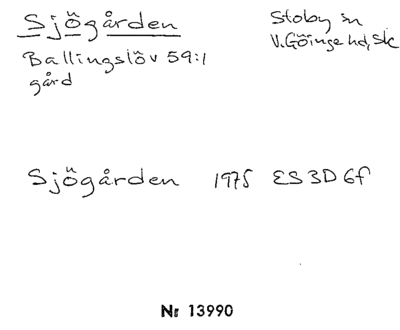 Sjögården
Stoby sn
V. Göinge hd, Sk
Ballingslöv 59:1
gård
Sjögården 1975 ES 3D 6f
Nr 13990